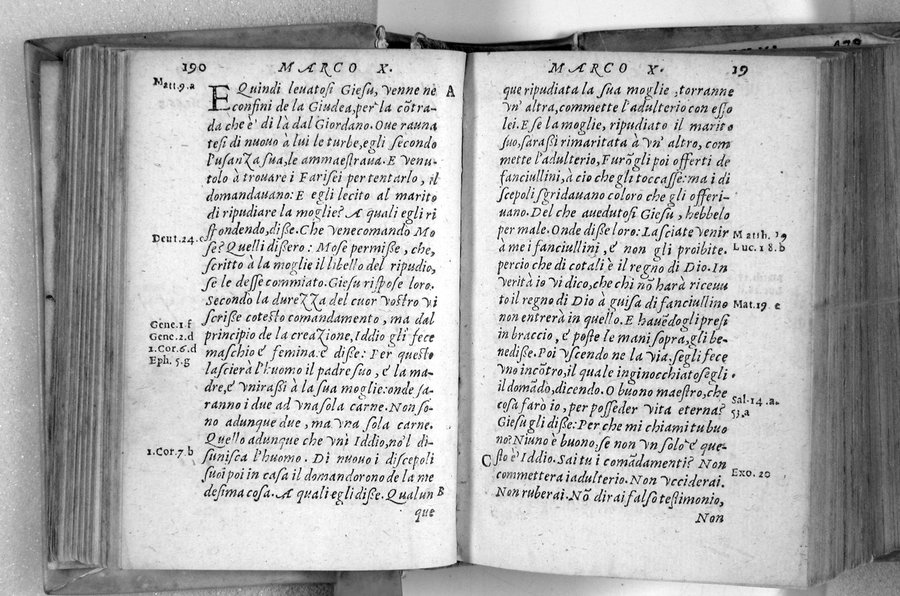 190 MARCO X.
Matt.9.a
E Quindi leuatosi Giesu, venne nè A
confini de la Giudea, per la cõtra-
da che è di là dal Giordano. Oue rauna
tesi di nuouo à lui le turbe, egli secondo
l'usanza sua, le ammaestraua. E venu-
tolo à trouare i Farisei per tentarlo, il
domandauano: E egli lecito al marito
di ripudiare la moglie? A quali egli ri
spondendo, disse. Che vene comando Mo
Deut.24.c
se? Quelli dissero: Mose permisse, che,
scritto à la moglie il libello del ripudio,
se le desse commiato. Giesu rispose loro.
Secondo la durezza del cuor vostro vi
scrisse cotesto comandamento, ma dal
Gene.1.f
principio de la creazione, Iddio gli fece
Gene.2.d
maschio e femina. e disse: Per questo
1.Cor.6.d
lascierà l'huomo il padre suo, e la ma-
Eph.5.g
dre, e vnirassi à la sua moglie: onde sa-
ranno i due ad vna sola carne. Non so-
no adunque due, ma vna sola carne.
Quello adunque che vnì Iddio, no'l di-
1.Cor.7.b
sunisca l'huomo. Di nuouo i discepoli
suoi poi in casa il domandorono de la me
desima cosa. A quali egli disse. Qualun B
que
MARCO X. 19
que ripudiata la sua moglie, torranne
vn' altra, commette l'adulterio con esso
lei. E se la moglie, ripudiato il marito
suo, sarassi rimaritata à vn' altro, com
mette l'adulterio, Furõgli poi offerti de
fanciullini, à cio che gli toccasse: ma i di
scepoli sgridauano coloro che gli offeri-
uano. Del che auedutosi Giesu, hebbelo
per male. Onde disse loro: Lasciate venir
Matth. 19
à me i fanciullini, e non gli proibite.
Luc.18.b
percio che di cotali è il regno di Dio. In
verità io vi dico, che chi nõ harà riceuu
to il regno di Dio à guisa di fanciullino
Mat.19 c
non entrerà in quello. E hauẽdogli presi
in braccio, e poste le mani sopra, gli be-
nedisse. Poi vscendo ne la via, segli fece
vno incõtro, il quale inginocchiatosegli
il domãdò, dicendo. O buono maestro, che
cosa farò io, per posseder vita eterna?
Sal.14.a.
53.a
Giesu gli disse: Per che mi chiami tu buo
no? Niuno è buono, se non vn solo e que-
C sto è Iddio. Sai tu i comãdamenti? Non
commetterai adulterio. Non vcciderai.
Exo. 20
Non ruberai. Nõ dirai falso testimonio,
Non